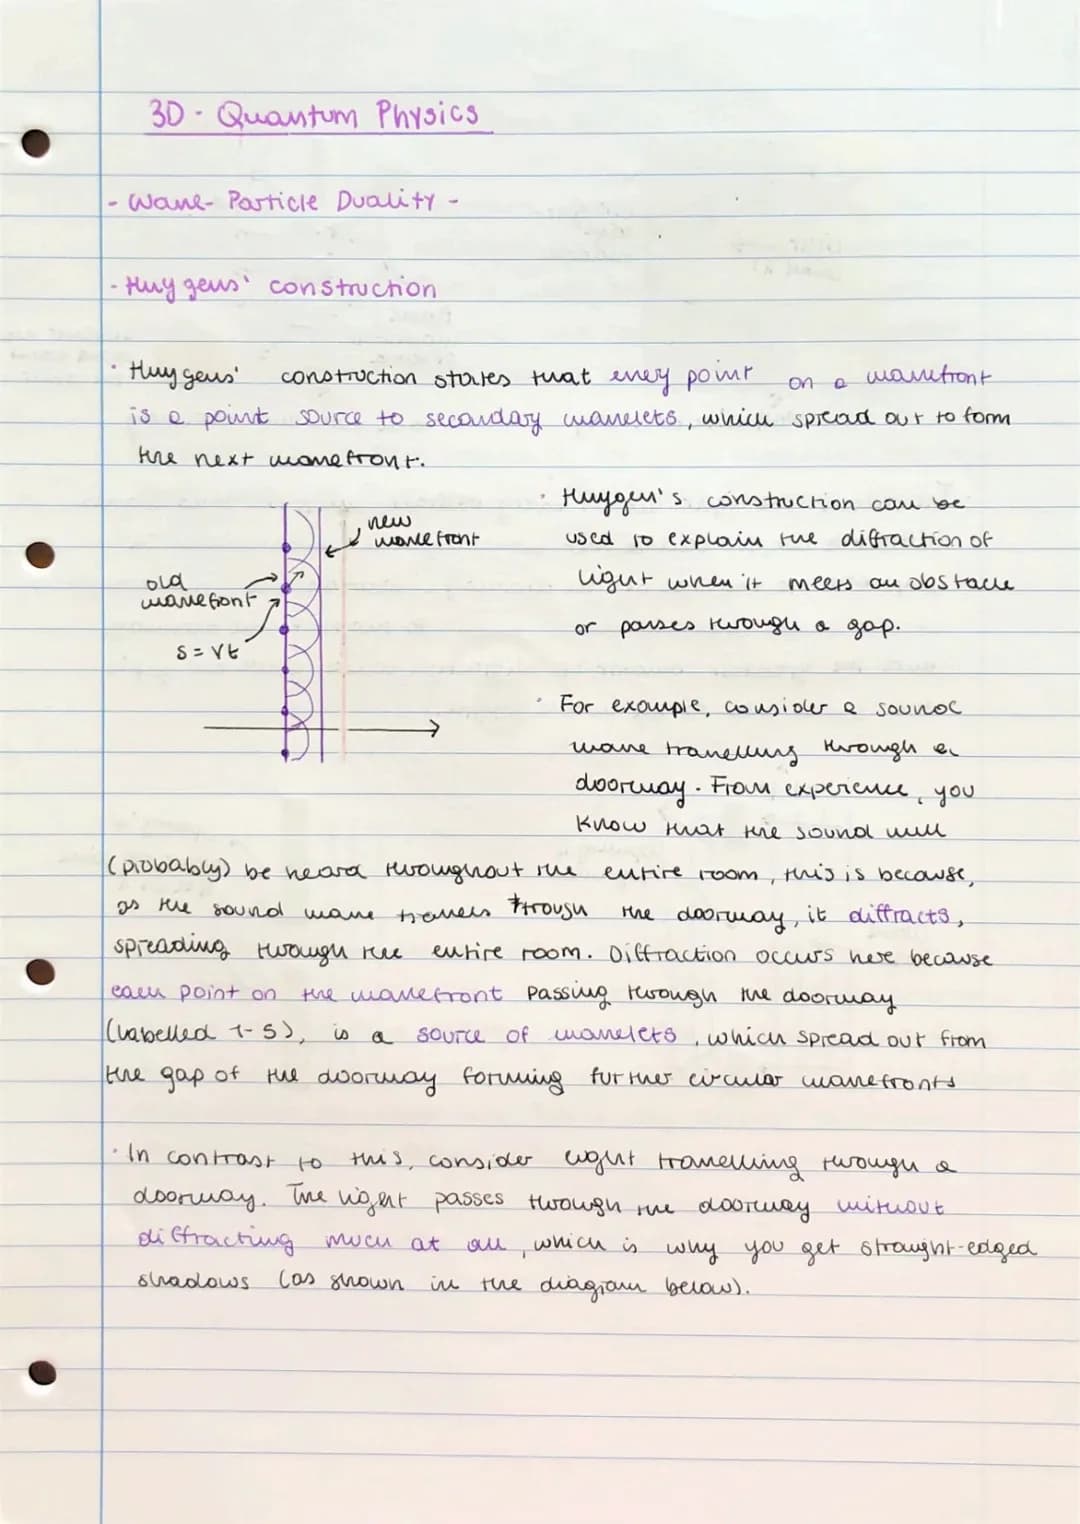 3D - Quantum Physics
- Wave-Particle Duality -
- Huygens' construction
• Huygens' construction states that every point on a wavefront
is a point source to secondary wavelets, which spread out to form
the next wavefront.
new
wavefront
old
wavefront
s = vt
• Huygen's construction can be
used to explain the diffraction of
light when it meets an obstacle
or passes through a gap.
• For example, consider a sound
wave travelling through a
doorway. From experience, you
know that the sound will
(probably) be heard throughout the entire room, this is because,
as the sound wave travels through the doorway, it diffracts,
spreading through the entire room. Diffraction occurs here because
each point on the wavefront passing through the doorway
(labelled 1-5), is a source of wavelets, which spread out from
the gap of the doorway forming further circular wavefronts
• In contrast to this, consider light travelling through a
doorway. The light passes through the doorway without
diffracting much at all, which is why you get straight-edged
shadows (as shown in the diagram below).